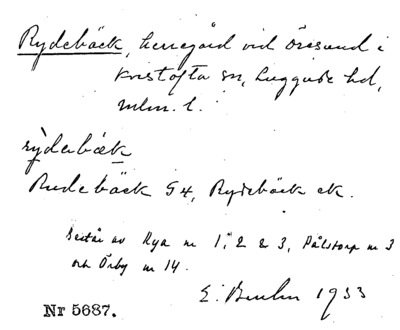 Rydebäck, herregård vid Öresund i
Kristofta sn, Luggude hd,
Mlm. l.
rỳdebæk
Rudebäck G4, Rydebäck ek.
Består av Rya nr 1, 2 & 3, Pålstorp nr 3
och Örby nr 14.
E. 1933
Nr 5687.